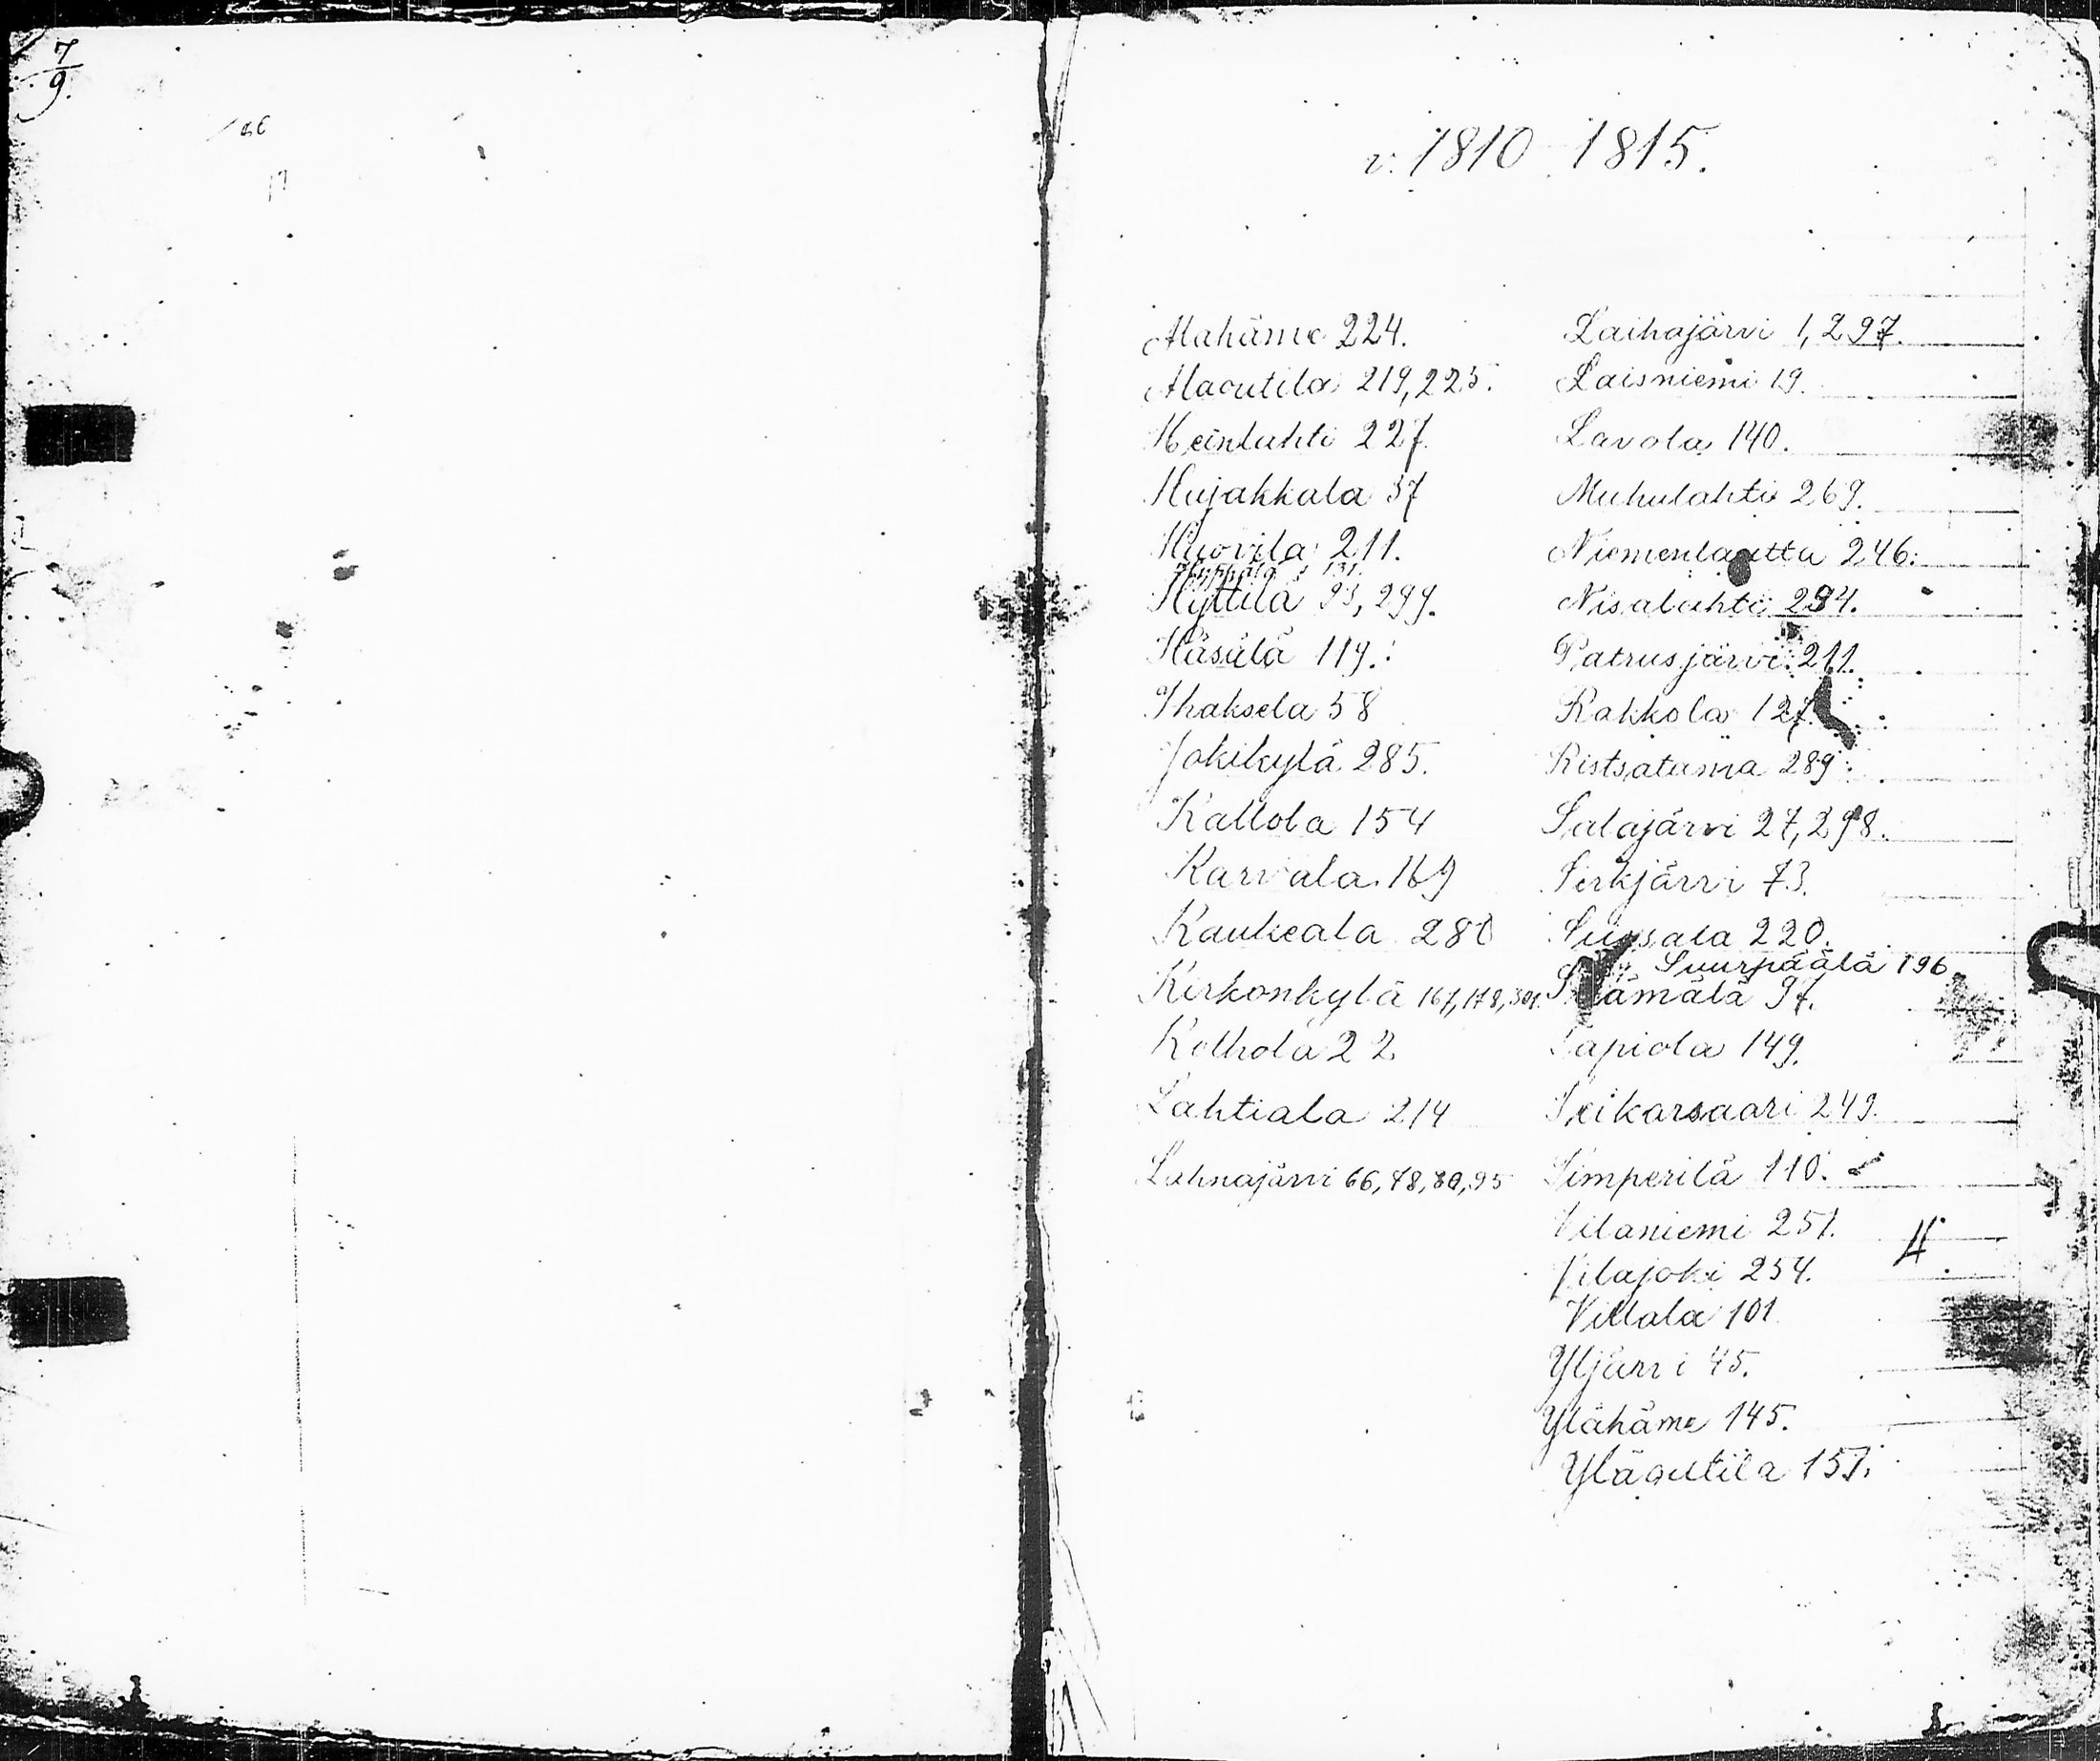 7
9.
v. 1810 1815.
Alahäme 224.
Alaoutila 219, 225.
Heinlahti 227.
Hujakkala 37
Huovila 211.
Hyppölä 131.
Hyttilä 93, 299.
Häsälä 119.
Ihaksela 58
Jokikylä 285.
Kallola 154
Karvala 169
Kaukeala 280
Kirkonkylä 167, 178, 301.
Kolhola 22
Lahtiala 214
Lahnajärvi 66, 78, 80, 95
Laihajärvi 1, 297.
Laisniemi 19.
Lavola 140.
Muhulahti 269.
Niemenlautta 246.
Nisalahti 294.
Patrusjärvi 211.
Rakkola 127.
Ristsatama 289.
Salajärvi 27, 298.
Serkjärvi 73.
220.
Suurpäälä 196.
Säämälä 97.
Tapiola 149.
Teikarsaari 249.
Timperilä 110.
Vilaniemi 251.
Vilajoki 254.
Villala 101
Yljärvi 45.
Ylähäme 145.
Yläoutila 157.